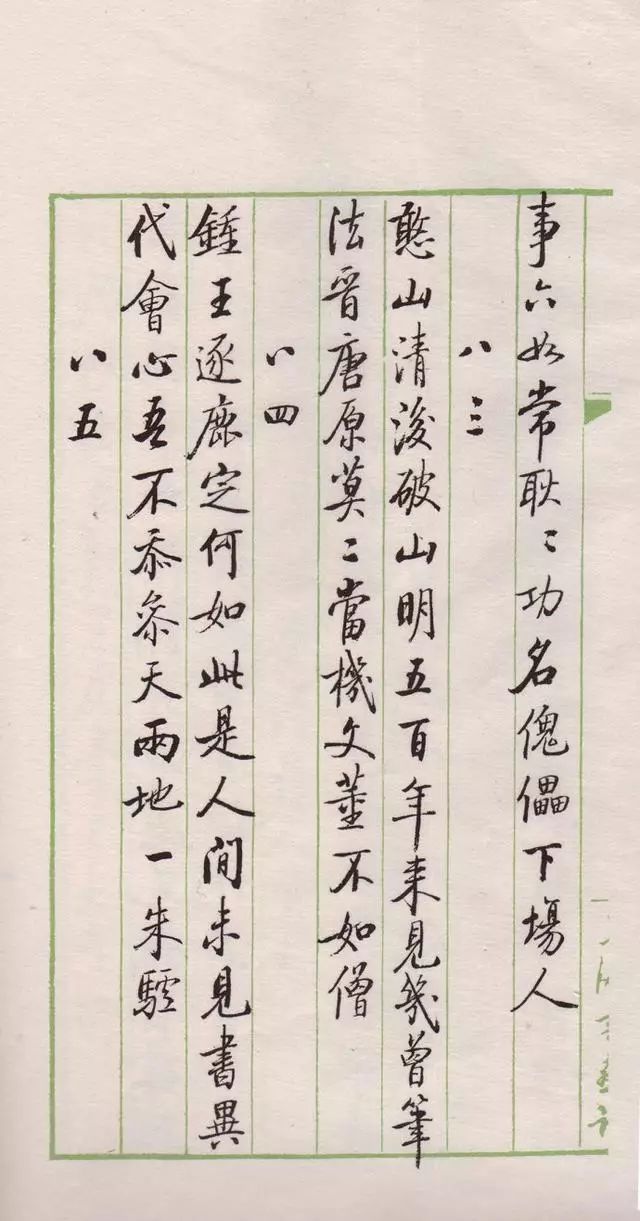 事六如常耿〻功名傀儡下場人
八三
憨山清後破山明五百年来見幾曾筆
法晋唐原莫二當機文董不如僧
八四
鍾王逐鹿定何如此是人间未見書異
代會心吾不忝參天兩地一朱驢
八五